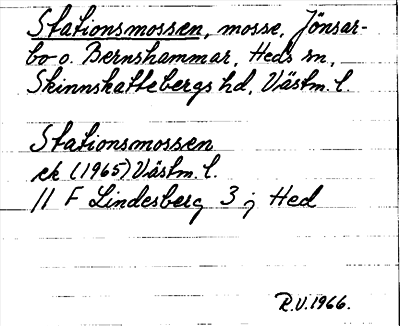 Stationsmossen, mosse, Jönsar-
bo o. Bernshammar, Heds sn,
Skinnskattebergs hd, Västm. l.
Stationsmossen
ek (1965) Västm. l.
11 F Lindesberg 3 j Hed
R.V. 1966.